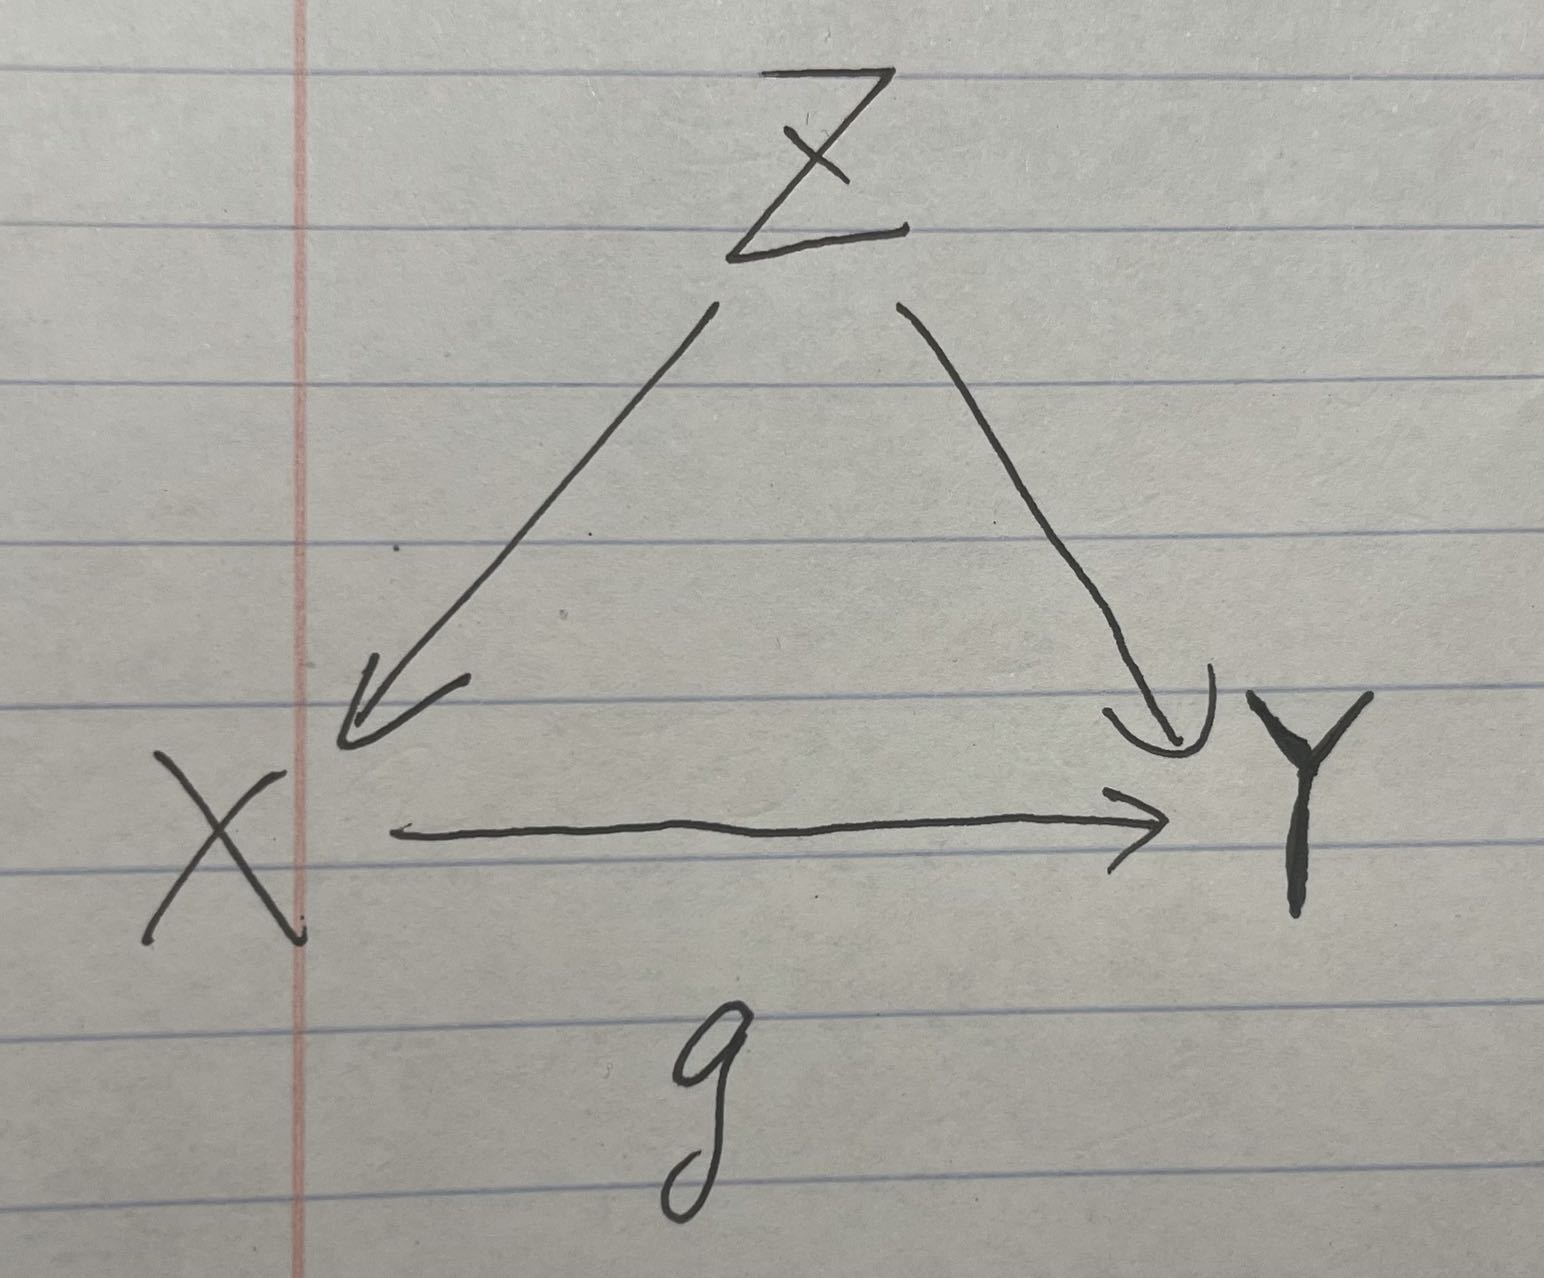 Z
X Y
g